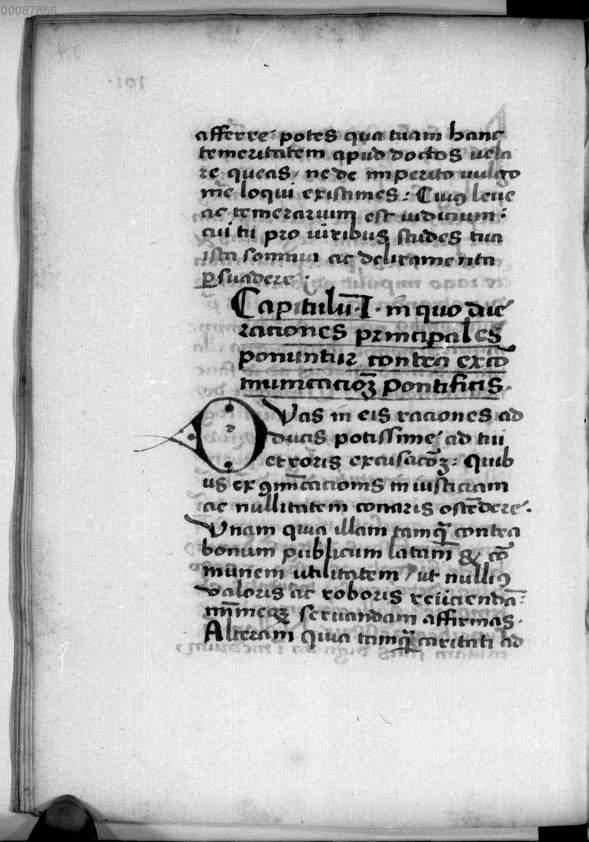 00087866
afferre potes qua tuam hanc
temeritatem apud doctos vela
re queas / ne de imperito vulgo
me loqui existimes : Cuiꝰ leue
ac temerarium est iudicium :
cui tu pro viribus studes tua
ista somnia ac deliramenta
ꝑsuadere :
Capitulū · I · in quo due
raciones principales
ponuntur contra exco
municacioꝫ pontificis ·
Duas in eis raciones ad
ducis potissime ad tui
erroris excusacōꝫ : Quib
us exꝯmūicacionis iniusticiam
ac nullitatem conaris ostēdere ·
Vnam quia illam tamꝙ̄ contra
bonum publicum latam & cō
munem vtilitatem / vt nulliꝰ
valoris ac roboris reiiciendā
servandam affirmas ·
Alteram quia tamꝙ̄ caritati ad